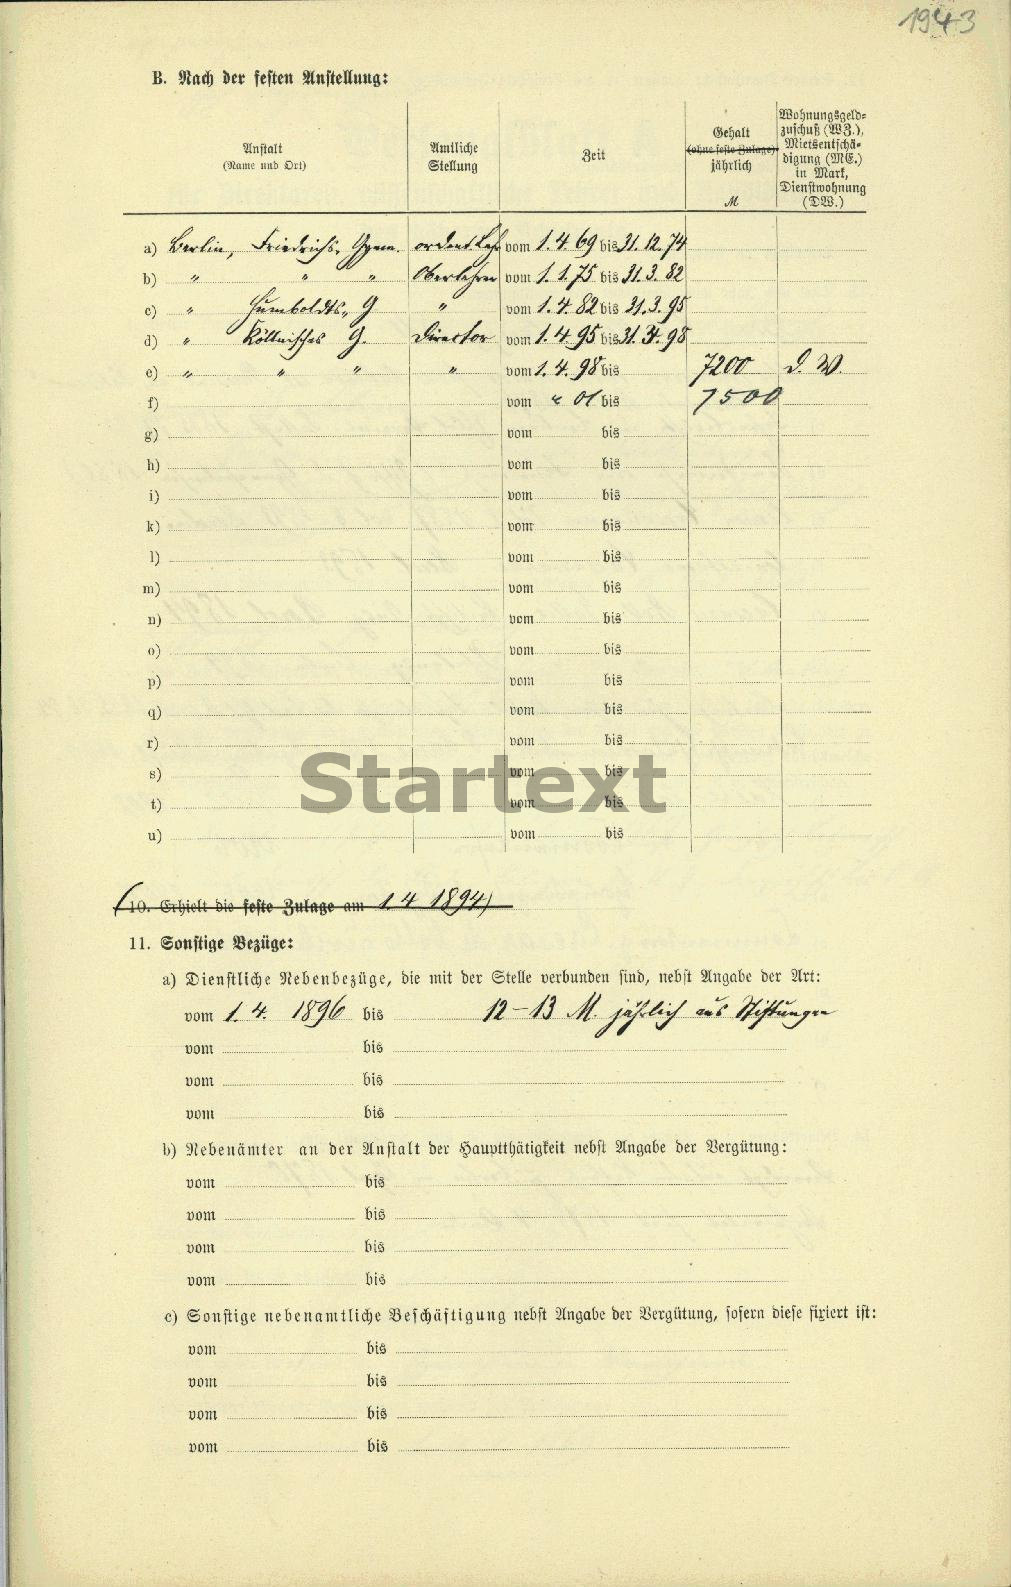 1943
B. Nach der festen Anstellung:
Anstalt
(Name und Ort)
Amtliche
Stellung
Zeit
Gehalt
(ohne feste Zulage)
jährlich
M
Wohnungsgeld-
zuschuß (WZ.),
Mietsentschä-
digung (ME.)
in Mark,
Dienstwohnung
(DW.)
a) Berlin, Friedrichs, Gymn. ordentl. Lehr vom 1. 4. 69 bis 31. 12. 74
b) " " " Oberlehrer vom 1. 1. 75 bis 31. 3. 82
c) " Humboldts, G " vom 1. 4. 82 bis 31. 3. 95
d) " Köllnisches G. Director vom 1. 4. 95 bis 31. 3. 98
e) " " " " vom 1. 4. 98 bis 7200 D. W.
f) vom " 01 bis 7500
g) vom bis
h) vom bis
i) vom bis
k) vom bis
l) vom bis
m) vom bis
n) vom bis
o) vom bis
p) vom bis
q) vom bis
r) vom bis
s) vom bis
Startext
t) vom bis
u) vom bis
(10. Erhielt die feste Zulage am 1. 4 1894)
11. Sonstige Bezüge:
a) Dienstliche Nebenbezüge, die mit der Stelle verbunden sind, nebst Angabe der Art:
vom 1. 4. 1896 bis 12–13 M. jährlich aus Stiftungen
vom bis
vom bis
vom bis
b) Nebenämter an der Anstalt der Hauptthätigkeit nebst Angabe der Vergütung:
vom bis
vom bis
vom bis
vom bis
c) Sonstige nebenamtliche Beschäftigung nebst Angabe der Vergütung, sofern diese fixiert ist:
vom bis
vom bis
vom bis
vom bis